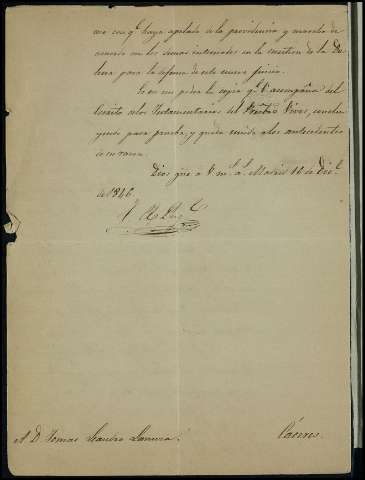 no con q.e haya apelado de la providencia y marcha de
acuerdo con los demas interesados en la cuestion de la De
hesa para la defensa de este nuevo juicio.
Es en mi poder la copia q.e V. acompaña del
escrito de los Testamentarios del Presb.o Vivas, conclu
yendo para prueba, y queda unida a los antecedentes
de su razon.
Dios gue a V. m.s a.s Madrid 16 de Dic.e
de 1846.
A D. Tomas Leandro
Cáceres.